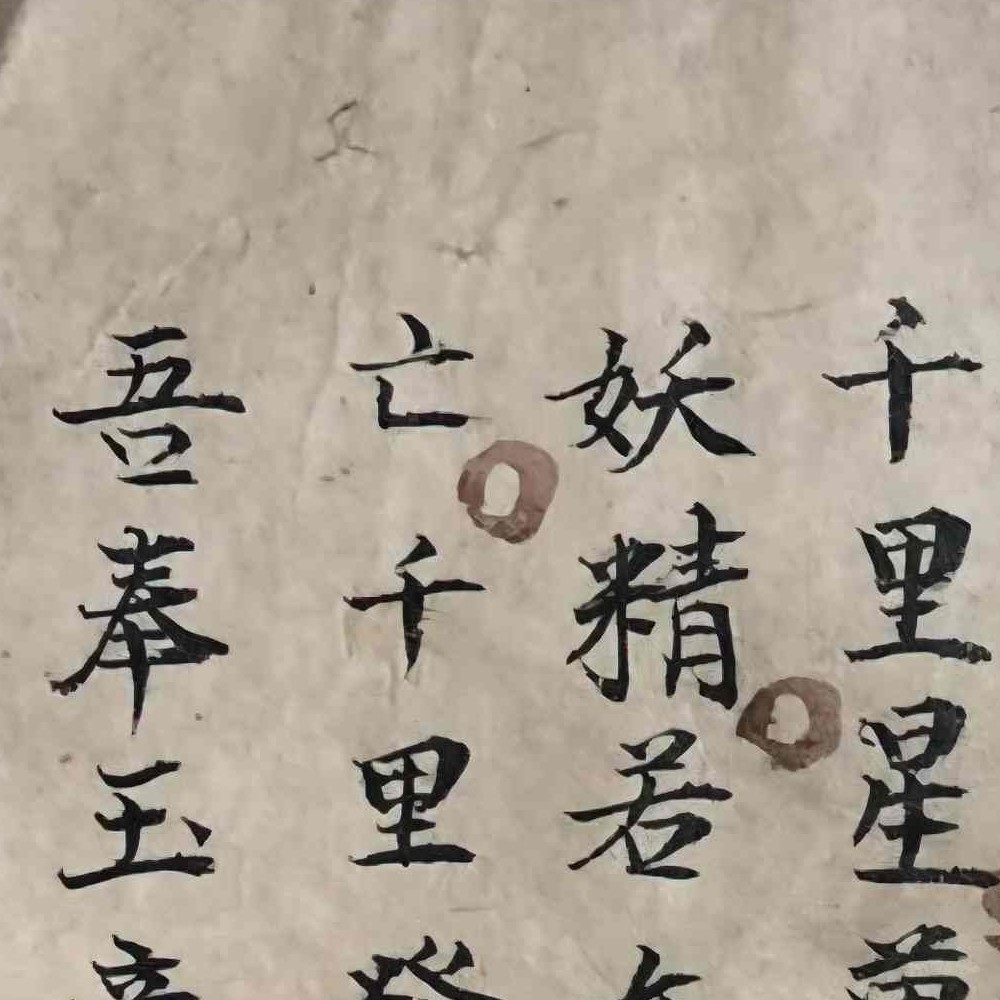 千里星
妖精若
亡千里
吾奉玉